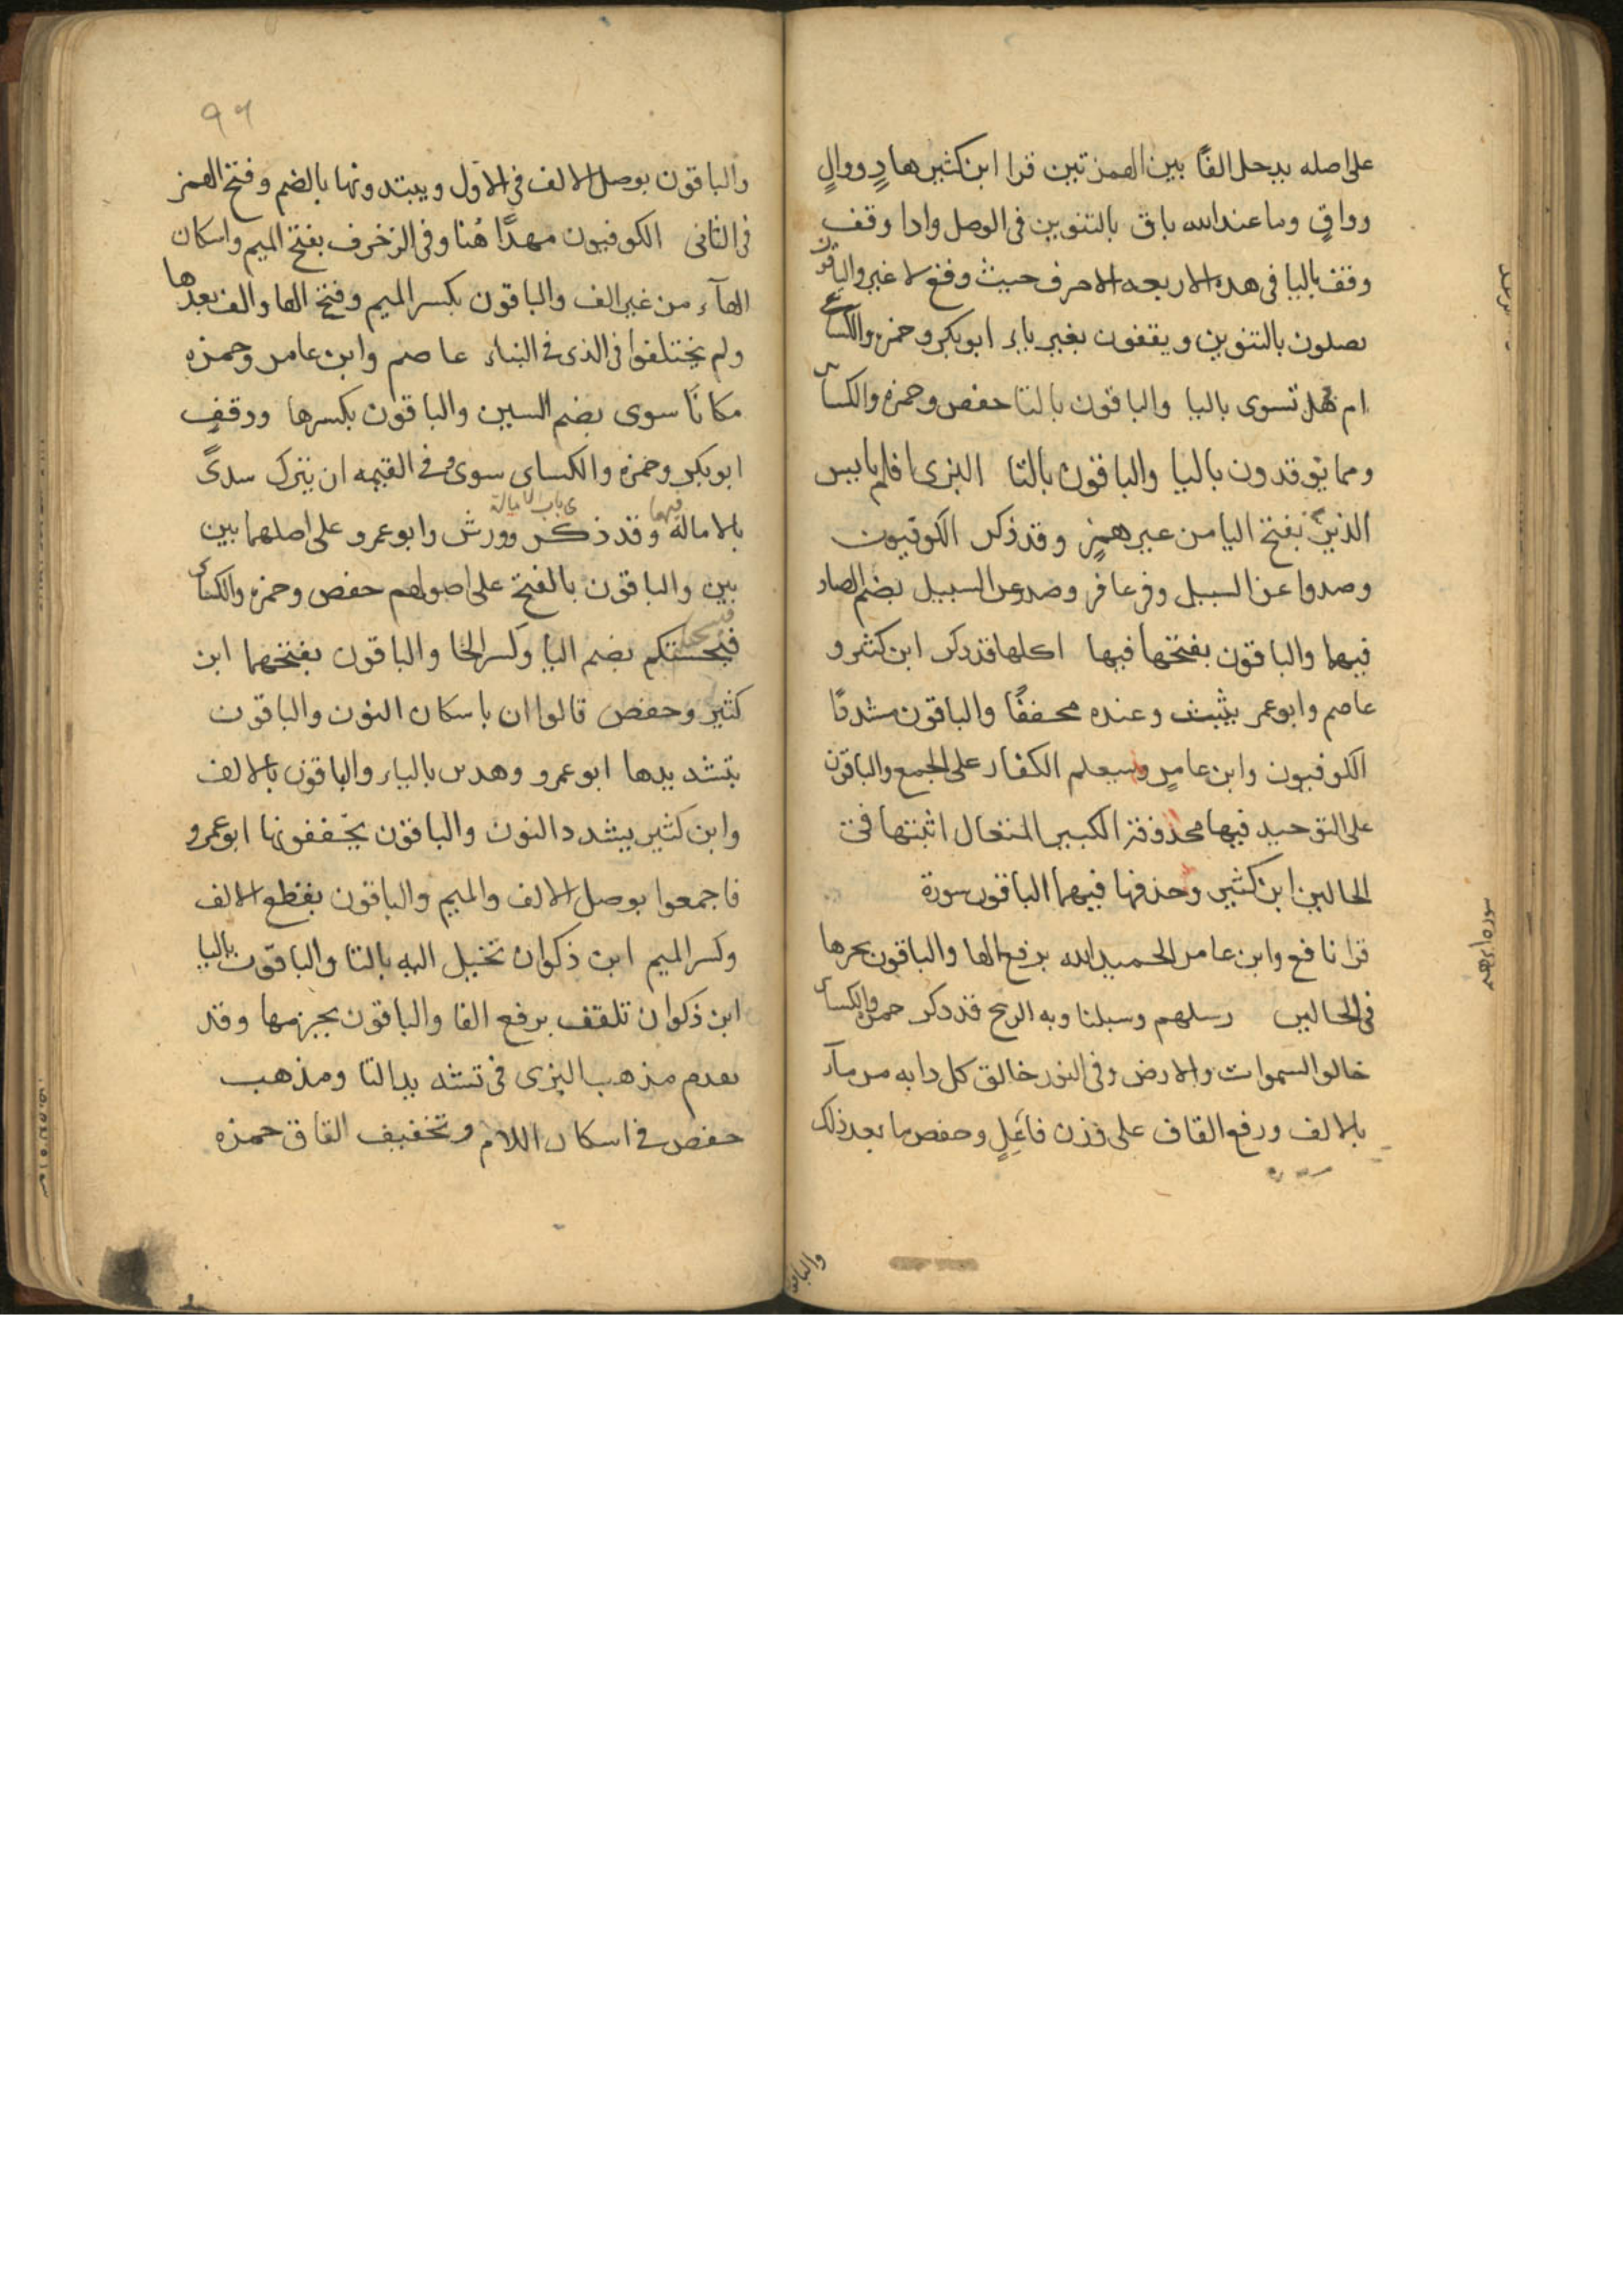 على اصله يدخل الفًا بين الهمزتين قرا ابن كثير هادٍ ووالٍ
وواقٍ وما عند الله باق بالتنوين فى الوصل واذا وقف
وقف باليا فى هذه الاربعه الاحرف حيث وقع لا غير والباقون
يصلون بالتنوين ويقفون بغير ياء ابو بكر وحمزه والكسائى
ام هل تسوى باليا والباقون بالتا حفص وحمزه والكسائى
ومما توقدون باليا والباقون بالتا البزى افلم يايس
الذين بفتح اليا من غير همزٍ وقد ذكر الكوفيون
وصدوا عن السبيل وفى غافر وصد عن السبيل بضم الصاد
فيهما والباقون بفتحها فيها اكلها قد ذكر ابن كثير و
عاصم وابو عمر يثبت وعنده مخففًا والباقون مشددًا
الكوفيون وابن عامرٍ وسيعلم الكفار على الجمع والباقون
على التوحيد فيها محذوفة الكبير المتعال اثبتها فى
الحالين ابن كثير وحذفها فيهما الباقون سورة
سورة ابرهيم
قرا نافع وابن عامر الحميد الله برفع الها والباقون بجرها
فى الحالين رسلهم وسبلنا وبه الريح قد ذكر حمزه والكسائى
خالق السموات والارض وفى النور خالق كل دابه من مآء
بالالف ورفع القاف على وزن فاعِلٍ وخفض ما بعد ذلك
والباقون
٩٦
والباقون بوصل الالف فى الاول ويبتدونها بالضم وفتح الهمز
فى الثانى الكوفيون مهدًا هُنا وفى الزخرف بفتح الميم واسكان
الهآء من غير الف والباقون بكسر الميم وفتح الها والف بعدها
ولم يختلفوا فى الذى فى النباء عاصم وابن عامر وحمزه
مكانًا سوى بضم السين والباقون بكسرها ووقف
ابو بكر وحمزه والكساى سوى وفى القيمه ان يترك سدىً
بالامالة فيهما وقد ذكر فى باب الامالة وورش وابو عمرو على اصلهما بين
بين والباقون بالفتح على اصولهم حفص وحمزه والكسائى
فيسحتكم بضم اليا وكسر الحا والباقون بفتحهما ابن
كثير وحفص قالوا ان باسكان النون والباقون
بتشديدها ابو عمرو وهذين بالياء والباقون بالالف
وابن كثير يشدد النون والباقون يخففونها ابو عمرو
فاجمعوا بوصل الالف والميم والباقون بقطع الالف
وكسر الميم ابن ذكوان تخيل اليه بالتا والباقون باليا
ابن ذكوان تلقف برفع الفا والباقون بجزمها وقد
تقدم مذهب البزى فى تشديد التا ومذهب
حفص فى اسكان اللام وتخفيف القاف حمزه